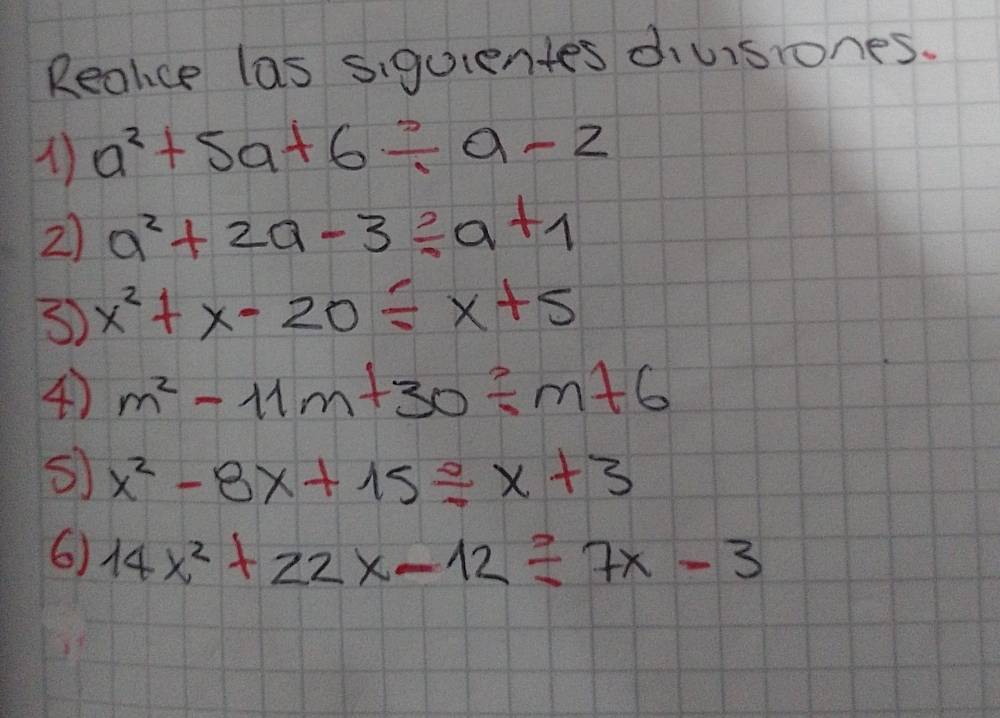 Realice las siguientes divisiones.
1) a² + 5a + 6 ÷ a - 2
2) a² + 2a - 3 ÷ a + 1
3) x² + x - 20 ÷ x + 5
4) m² - 11m + 30 ÷ m + 6
5) x² - 8x + 15 ÷ x + 3
6) 14x² + 22x - 12 ÷ 7x - 3